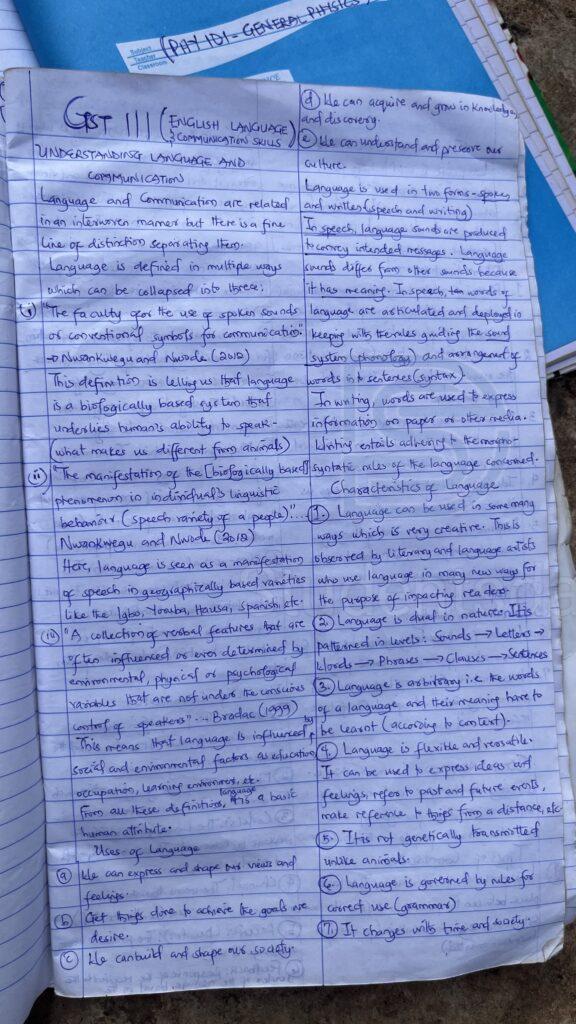 Subject
Teacher
Classroom
(PHY 101 - GENERAL PHYSICS)
GST 111 (ENGLISH LANGUAGE
& COMMUNICATION SKILLS)
UNDERSTANDING LANGUAGE AND
COMMUNICATION
Language and Communication are related
in an interwoven manner but there is a fine
line of distinction separating them.
Language is defined in multiple ways
which can be collapsed into three:
(i) "The faculty for the use of spoken sounds
or conventional symbols for communication"
→ Nwankwegu and Nwode (2012)
This definition is telling us that language
is a biologically based system that
underlies human's ability to speak-
(what makes us different from animals)
(ii) "The manifestation of the [biologically based]
phenomenon in individual's linguistic
behaviour (speech variety of a people)"...
Nwankwegu and Nwode (2012)
Here, language is seen as a manifestation
of speech in geographically based varieties
like the Igbo, Yoruba, Hausa, Spanish, etc.
(iii) "A collection of verbal features that are
often influenced or even determined by
environmental, physical or psychological
variables that are not under the conscious
control of speakers" ... Bradac (1999)
This means that language is influenced by
social and environmental factors as education,
occupation, learning environment, etc.
From all these definitions, language is a basic
human attribute.
Uses of Language
(a) We can express and shape our views and
feelings.
(b) Get things done to achieve the goals we
desire.
(c) We can build and shape our society.
(d) We can acquire and grow in knowledge
and discovery.
(e) We can understand and preserve our
culture.
Language is used in two forms - spoken
and written (speech and writing)
In speech, language sounds are produced
to convey intended messages. Language
sounds differ from other sounds because
it has meaning. In speech, words of
language are articulated and deployed in
keeping with the rules guiding the sound
system (phonology) and arrangement of
words into sentences (syntax).
In writing, words are used to express
information on paper or other media.
Writing entails adhering to the morpho-
syntatic rules of the language concerned.
Characteristics of Language
1. Language can be used in so many
ways which is very creative. This is
observed by literary and language artists
who use language in many new ways for
the purpose of impacting readers.
2. Language is dual in nature. It is
patterned in levels: Sounds → Letters →
Words → Phrases → Clauses → Sentences
3. Language is arbitrary i.e. the words
of a language and their meaning have to
be learnt (according to context).
4. Language is flexible and versatile.
It can be used to express ideas and
feelings, refer to past and future events,
make reference to things from a distance, etc
5. It is not genetically transmitted
unlike animals.
6. Language is governed by rules for
correct use (grammar)
7. It changes with time and society.